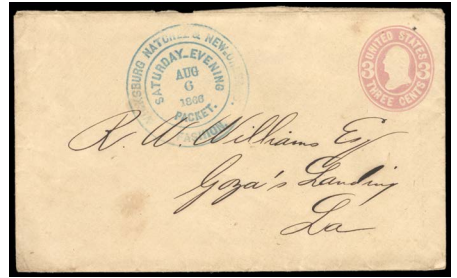 VICKSBURG NATCHEZ & NEW-ORLEANS
SATURDAY-EVENING
AUG
6
1866
PACKET.
FASHION
UNITED STATES
3 3
THREE CENTS
R. W. Williams Esq
Goza's Landing
La